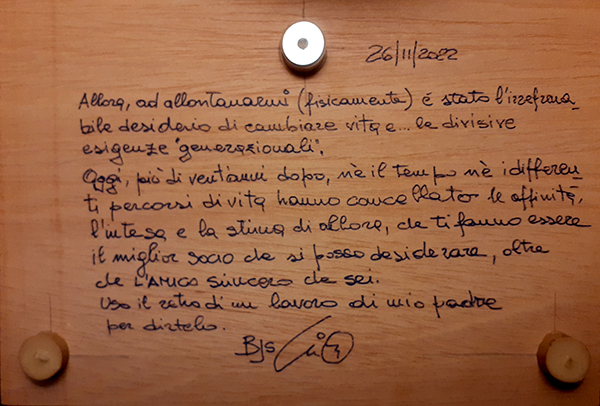 26/11/2022
Allora, ad allontanarmi (fisicamente) é stato l'irrefrena-
bile desiderio di cambiare vita e... le divisive
esigenze "generazionali".
Oggi, più di vent'anni dopo, nè il tempo nè i differen-
ti percorsi di vita hanno cancellato le affinità,
l'intesa e la stima di allora, che ti fanno essere
il miglior socio che si possa desiderare, oltre
che L'AMICO sincero che sei.
Uso il retro di un lavoro di mio padre
per dirtelo.
BJS